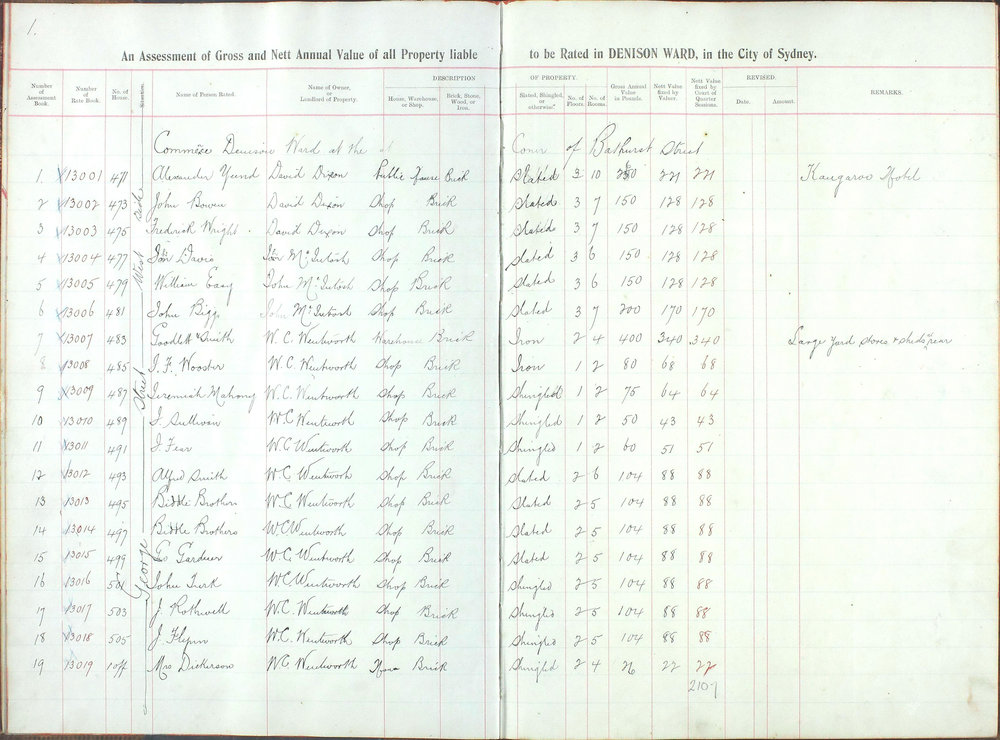 1.
An Assessment of Gross and Nett Annual Value of all Property liable to be Rated in DENISON WARD, in the City of Sydney.
DESCRIPTION OF PROPERTY. REVISED.
Number of Assessment Book. Number of Rate Book. No. of House. Situation. Name of Person Rated. Name of Owner, or Landlord of Property. House, Warehouse, or Shop. Brick, Stone, Wood, or Iron. Slated, Shingled, or otherwise. No. of Floors. No. of Rooms. Gross Annual Value in Pounds. Nett Value fixed by Valuer. Nett Value fixed by Court of Quarter Sessions. Date. Amount. REMARKS.
Commence Denison Ward at the Corner of Bathurst Street
George Street West Side
1. 13001 471 Alexander Yund David Dixon Public House Brick Slated 3 10 221 221 Kangaroo Hotel
2 13002 473 John Bowen David Dixon Shop Brick Slated 3 7 150 128 128
3 13003 475 Fredrick Wright David Dixon Shop Brick Slated 3 7 150 128 128
4 13004 477 Davis McIntosh Shop Brick Slated 3 6 150 128 128
5 13005 479 William Easy John McIntosh Shop Brick Slated 3 6 150 128 128
6 13006 481 John Biggs John McIntosh Shop Brick Slated 3 7 200 170 170
7 13007 483 Goodlett & Smith W. C. Wentworth Warehouse Brick Iron 2 4 400 340 340 Large Yard Stores & Sheds in rear
8 13008 485 J. F. Wooster W. C. Wentworth Shop Brick Iron 1 2 80 68 68
9 13009 487 Jeremiah Mahony W. C. Wentworth Shop Brick Shingled 1 2 75 64 64
10 13010 489 J. Sullivan W. C. Wentworth Shop Brick Shingled 1 2 50 43 43
11 13011 491 J. Fear W. C. Wentworth Shop Brick Shingled 1 2 60 51 51
12 13012 493 Alfred Smith W. C. Wentworth Shop Brick Slated 2 6 104 88 88
13 13013 495 Biddle Brothers W. C. Wentworth Shop Brick Slated 2 5 104 88 88
14 13014 497 Biddle Brothers W. C. Wentworth Shop Brick Slated 2 5 104 88 88
15 13015 499 Gardener W. C. Wentworth Shop Brick Slated 2 5 104 88 88
16 13016 501 John Turk W. C. Wentworth Shop Brick Shingled 2 5 104 88 88
17 13017 503 J. Rothwell W. C. Wentworth Shop Brick Shingled 2 5 104 88 88
18 13018 505 J. Flynn W. C. Wentworth Shop Brick Shingled 2 5 104 88 88
19 13019 1off Mrs Dickerson W. C. Wentworth House Brick Shingled 2 4 26 22 22
2107